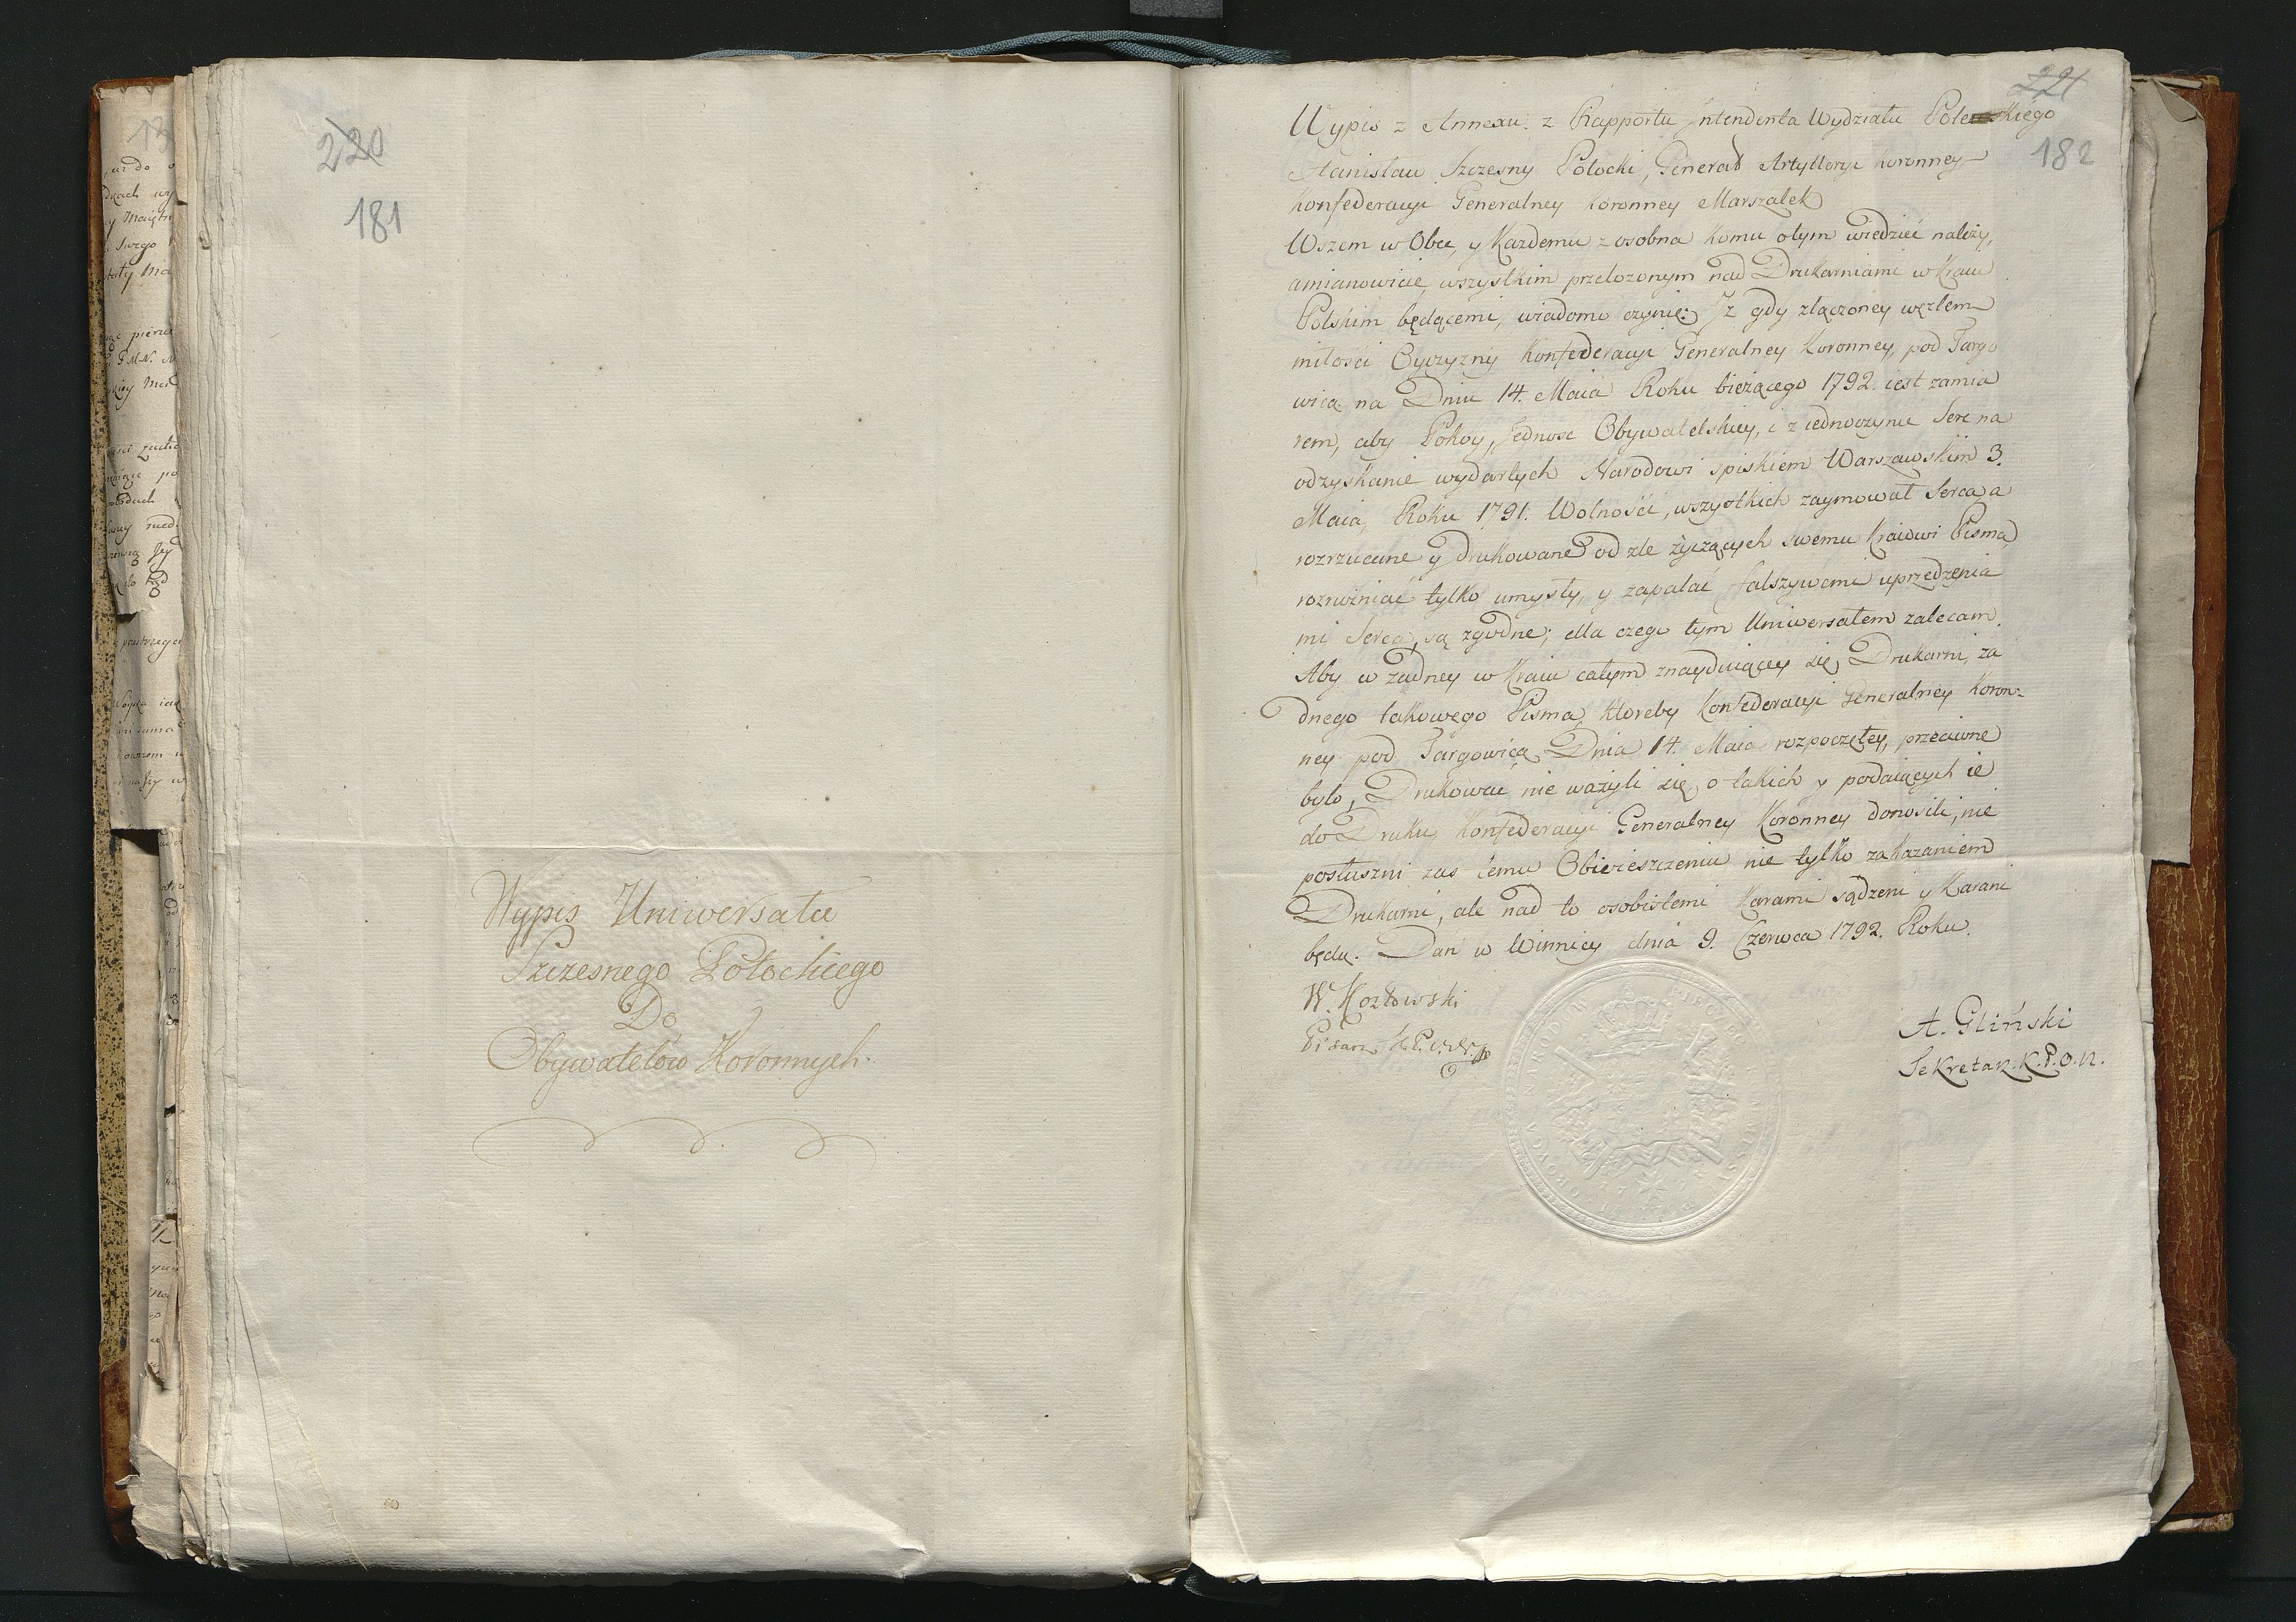 220
181
Wypis Uniwersału
Szczesnego Potockiego
Do
Obywatelów Koronnych.
221
182
Wypis z Annexu z Rapportu Jntendenta Wydziału
Stanisław Szczesny Potocki, Generał Artylleryi Koronney
Konfederacyi Generalney Koronney Marszałek
Wszem w Obec, y Kazdemu z osobna komu otym wiedzieć należy,
amianowicie, wszystkim przełozonym nad Drukarniami w Kraiu
Polskim będącemi, wiadomo czynię: Jz gdy złączoney węzłem
miłości Oyczyzny Konfederacyi Generalney Koronney, pod Targo
wicą na Dniu 14. Maia Roku bieżącego 1792. iest zamia
rem, aby Pokoy, Jednosc Obywatelskiey, i ziednoczynie Serc na
odzyskanie wydartych Narodowi spiskiem Warszawskim 3.
Maia, Roku 1791. Wolności, wszystkich zaymował Serca, a
rozrzucane y drukowane od zle życzących swemu Kraiowi Pisma,
rozrożniać tylko umysły, y zapalać fałszywemi uprzedzenia
mi Serca, są zgodne; dla czego tym Uniwersałem zalecam.
Aby w żadney w Kraiu całym znayduiącey się, Drukarni, ża
dnego takowego Pisma, ktoreby Konfederacyi Generalney Koron=
ney pod Targowicą Dnia 14. Maia rozpoczętey, przeciwne
było, Drukować nie ważyli się, o takich y podaiących ie
do Druku Konfederacyi Generalney Koronney donosili, nie
posłuszni zas temu Obwieszczeniu nie tylko zakazaniem
Drukarni, ale nad to osobistemi Karami sądzeni y Karani
będą. Dan w Winnicy dnia 9. Czerwca 1792. Roku.
W. Kozłowski
A. Gliński
Sekretarz. K. P. O. N.